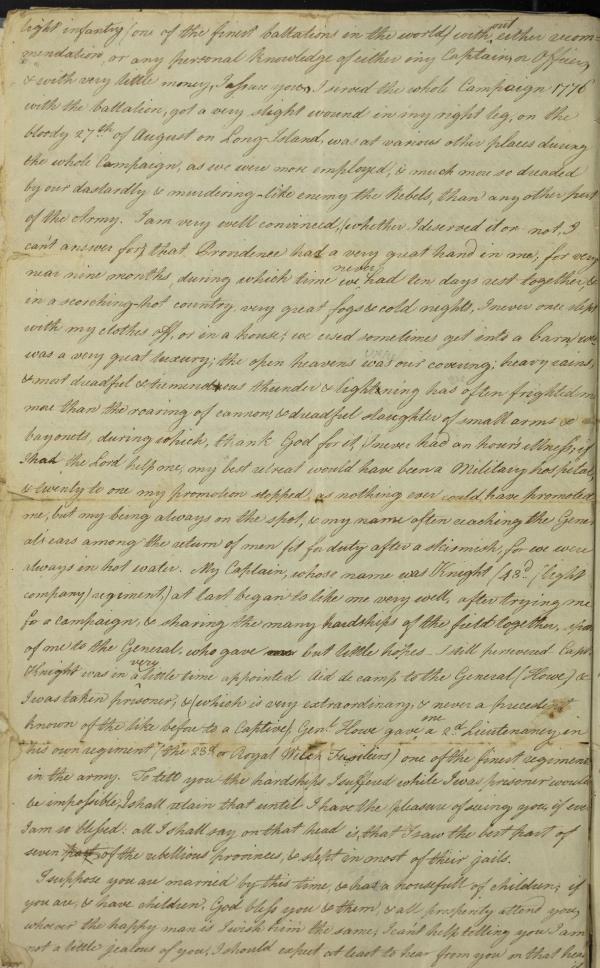 light infantry (one of the finest battalions in the world) without either recom-
mendation or any personal knowledge of either my Captain, or Officer,
& with very little money, I assure you, I served the whole Campaign 1776
with the battalion, got a very slight wound in my right leg, on the
bloody 27th of August on Long-Island, was at various other places during
the whole Campaign, as we were more employed, & much more so dreaded
by our dastardly & murdering-like enemy the Rebels, than any other part
of the Army. I am very well convinced, (whether I deserved it or not, I
can't answer for) that Providence had a very great hand in me, for very
near nine months, during which time we never had ten days rest together, &
in a scorching-hot country, very great fogs & cold nights, I never once slept
with my clothes off, or in a house; we used sometimes get into a barn
was a very great luxury; the open heavens was our covering; heavy rains,
& most dreadful & tremendous thunder & lightning has often frighted
more than the roaring of cannon, & dreadful slaughter of small arms &
bayonets, during which, thank God for it, I never had an hour's illness; if
I had the Lord help me; my best retreat would have been a Military hospital,
& twenty to one my promotion stopped, as nothing ever could have promoted
me, but my being always on the spot, & my name often reaching the Gener
als ears among the return of men fit for duty after a skirmish, for we were
always in hot water. My Captain, whose name was Knight (43d light
company regiment,) at last began to like me very well, after trying me
for a campaign, & sharing the many hardships of the field together,
of me to the General, who gave but little hopes - I still persevered Capt.
Knight was in a very little time appointed Aid de camp to the General (Howe) &
I was taken prisoner, & (which is very extraordinary, & never a precedent
known of the like before to a Captive) Genl. Howe gave me a 2d Lieutenancy in
his own regiment (the 23d or Royal Welch Fusiliers) one of the finest regiments
in the army. To tell you the hardships I suffered while I was prisoner would
be impossible, I shall retain that until I have the pleasure of seeing you, if ever
I am so blessed: all I shall say on that head is, that I saw the best part of
seven part of the rebellious provinces, & slept in most of their jails.
I suppose you are married by this time, & has a housefull of children; if
you are, & have children, God bless you & them, & all prosperity attend you,
whoever the happy man is I wish him the same; I can't help telling you I am
not a little jealous of you, I should expect at least to hear from you on that head